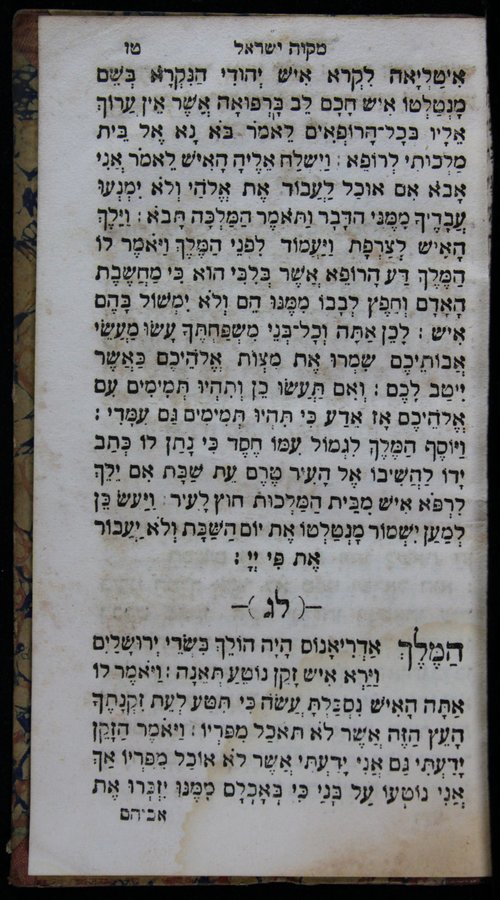 מקוה ישראל טז
אִיטַלְיָאה לִקְרֹא אִישׁ יְהוּדִי הַנִּקְרָא בְּשֵׁם
מָנְטַלְטוֹ אִישׁ חֲכַם לֵב בָּרְפוּאָה אֲשֶׁר אֵין עֲרוֹךְ
אֵלָיו בְּכָל־הָרוֹפְאִים לֵאמֹר בֹּא נָא אֶל בֵּית
מַלְכוּתִי לְרוֹפֵא : וַיִּשְׁלַח אֵלֶיהָ הָאִישׁ לֵאמֹר אֲנִי
אָבֹא אִם אוּכַל לַעֲבוֹד אֶת אֱלֹהַי וְלֹא יִמְנְעוּ
עֲבָדֶיךָ מִמֶּנִּי הַדָּבָר וַתֹּאמֶר הַמַּלְכָּה תָּבֹא : וַיֵּלֶךְ
הָאִישׁ לְצָרְפַת וַיַּעֲמוֹד לִפְנֵי הַמֶּלֶךְ וַיֹּאמֶר לוֹ
הַמֶּלֶךְ דַּע הָרוֹפֵא אֲשֶׁר בְּלִבִּי הוּא כִּי מַחֲשֶׁבֶת
הָאָדָם וְחֵפֶץ לְבָבוֹ מִמֶּנּוּ הֵם וְלֹא יִמְשׁוֹל בָּהֶם
אִישׁ : לָכֵן אַתָּה וְכָל־בְּנֵי מִשְׁפַּחְתֶּךָ עֲשׂוּ מַעֲשֵׂי
אֲבוֹתֵיכֶם שִׁמְרוּ אֶת מִצְוֹת אֱלֹהֵיכֶם כַּאֲשֶׁר
יִיטַב לָכֶם : וְאִם תַּעֲשׂוּ כֵן וְתִהְיוּ תְּמִימִים עִם
אֱלֹהֵיכֶם אָז אֵדַע כִּי תִּהְיוּ תְּמִימִים גַּם עִמָּדִי :
וַיּוֹסֶף הַמֶּלֶךְ לִגְמוֹל עִמּוֹ חֶסֶד כִּי נָתַן לוֹ כְּתַב
יָדוֹ לַהֲשִׁיבוֹ אֶל הָעִיר טֶרֶם עֵת שַׁבָּת אִם יֵלֵךְ
לִרְפֹּא אִישׁ מִבֵּית הַמַּלְכוּת חוּץ לָעִיר : וַיַּעַשׂ כֵּן
לְמַעַן יִשְׁמוֹר מָנְטַלְטוֹ אֶת יוֹם הַשַּׁבָּת וְלֹא יַעֲבוֹר
אֶת פִּי יְיָ :
—( לג )—
הַמֶּלֶךְ אַדְרִיאָנוֹס הָיָה הוֹלֵךְ בִּשְׂדֵי יְרוּשָׁלַיִם
וַיַּרְא אִישׁ זָקֵן נוֹטֵעַ תְּאֵנָה : וַיֹּאמֶר לוֹ
אַתָּה הָאִישׁ נִסְכַּלְתָּ עֲשֹׂה כִּי תִּטַּע לְעֵת זִקְנָתֶךָ
הָעֵץ הַזֶּה אֲשֶׁר לֹא תֹאכַל מִפִּרְיוֹ : וַיֹּאמֶר הַזָּקֵן
יָדַעְתִּי גַּם אֲנִי יָדַעְתִּי אֲשֶׁר לֹא אוֹכַל מִפִּרְיוֹ אַךְ
אֲנִי נוֹטְעוֹ עַל בָּנַי כִּי בְּאָכְלָם מִמֶּנּוּ יִזְכְּרוּ אֶת
אביהם